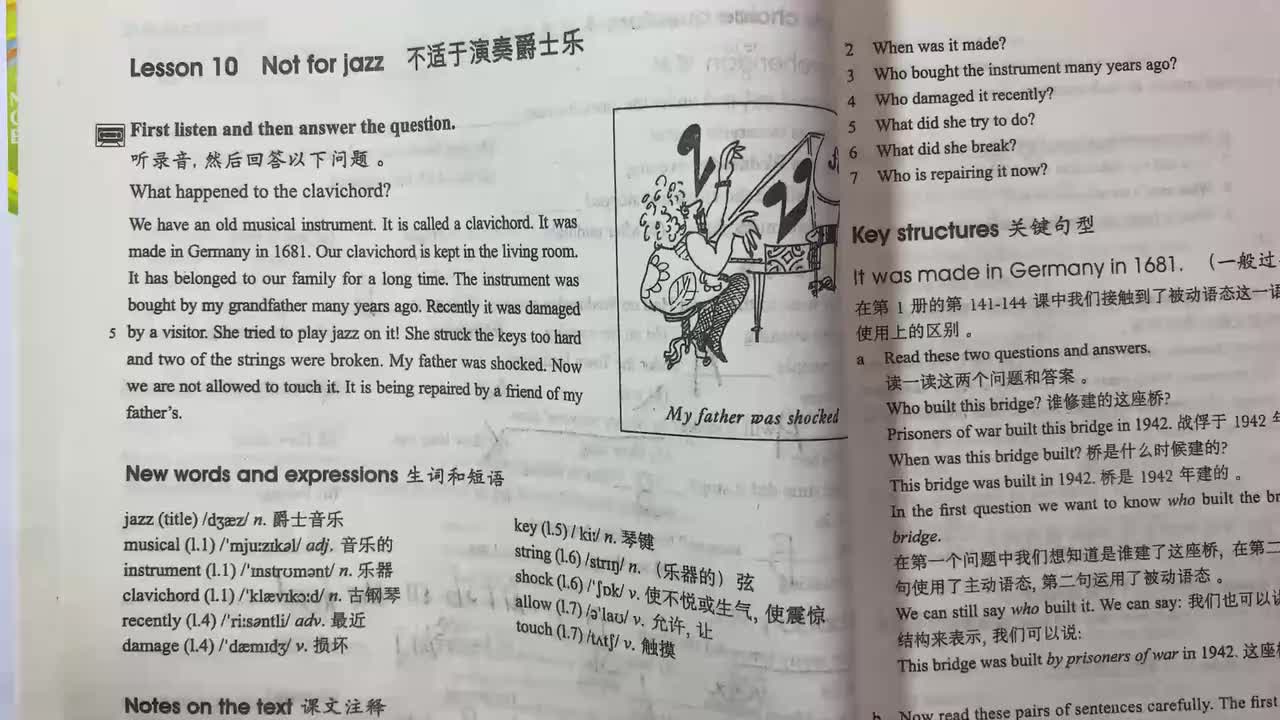 Lesson 10 Not for jazz 不适于演奏爵士乐
First listen and then answer the question.
听录音,然后回答以下问题。
What happened to the clavichord?
We have an old musical instrument. It is called a clavichord. It was
made in Germany in 1681. Our clavichord is kept in the living room.
It has belonged to our family for a long time. The instrument was
bought by my grandfather many years ago. Recently it was damaged
5 by a visitor. She tried to play jazz on it! She struck the keys too hard
and two of the strings were broken. My father was shocked. Now
we are not allowed to touch it. It is being repaired by a friend of my
father's.
My father was shocked
New words and expressions 生词和短语
jazz (title) /dʒæz/ n. 爵士音乐
musical (l.1) /'mju:zɪkəl/ adj. 音乐的
instrument (l.1) /'ɪnstrʊmənt/ n. 乐器
clavichord (l.1) /'klævɪkɔ:d/ n. 古钢琴
recently (l.4) /'ri:səntli/ adv. 最近
damage (l.4) /'dæmɪdʒ/ v. 损坏
key (l.5) / ki:/ n. 琴键
string (l.6) /strɪŋ/ n. (乐器的) 弦
shock (l.6) /'ʃɒk/ v. 使不悦或生气, 使震惊
allow (l.7) /ə'laʊ/ v. 允许, 让
touch (l.7) /tʌtʃ/ v. 触摸
Notes on the text 课文注释
2 When was it made?
3 Who bought the instrument many years ago?
4 Who damaged it recently?
5 What did she try to do?
6 What did she break?
7 Who is repairing it now?
Key structures 关键句型
It was made in Germany in 1681. (一般过
在第 1 册的第 141-144 课中我们接触到了被动语态这一
使用上的区别。
a Read these two questions and answers.
读一读这两个问题和答案。
Who built this bridge? 谁修建的这座桥?
Prisoners of war built this bridge in 1942. 战俘于 1942
When was this bridge built? 桥是什么时候建的?
This bridge was built in 1942. 桥是 1942 年建的。
In the first question we want to know who built the
bridge.
在第一个问题中我们想知道是谁建了这座桥, 在第二
句使用了主动语态, 第二句运用了被动语态。
We can still say who built it. We can say: 我们也可以
结构来表示, 我们可以说:
This bridge was built by prisoners of war in 1942. 这座
b Now read these pairs of sentences carefully. The first